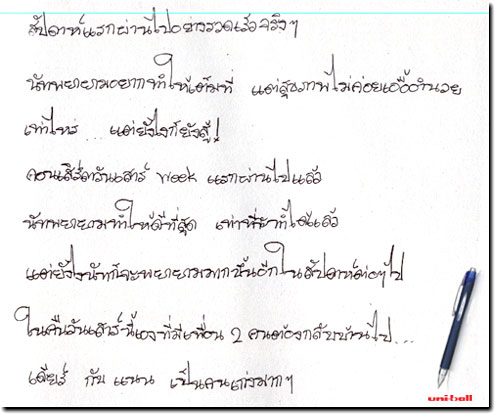 สัปดาห์แรกผ่านไปอย่างรวดเร็วจริงๆ
นัทพยายามอยากทำให้เต็มที่ แต่สุขภาพไม่ค่อยเอื้ออำนวย
เท่าไหร่... แต่ยังไงก็ยังสู้!
คอนเสิร์ตวันเสาร์ week แรกผ่านไปแล้ว
นัทพยายามทำให้ดีที่สุด เท่าที่จะทำได้แล้ว
แต่ยังไงนัทก็จะพยายามมากขึ้นอีกในสัปดาห์ต่อๆไป
ในคืนวันเสาร์นี้เองที่มีเพื่อน 2 คนต้องกลับบ้านไป...
เคียร์ กับ แนน เป็นคนเก่งมากๆ
uni-ball